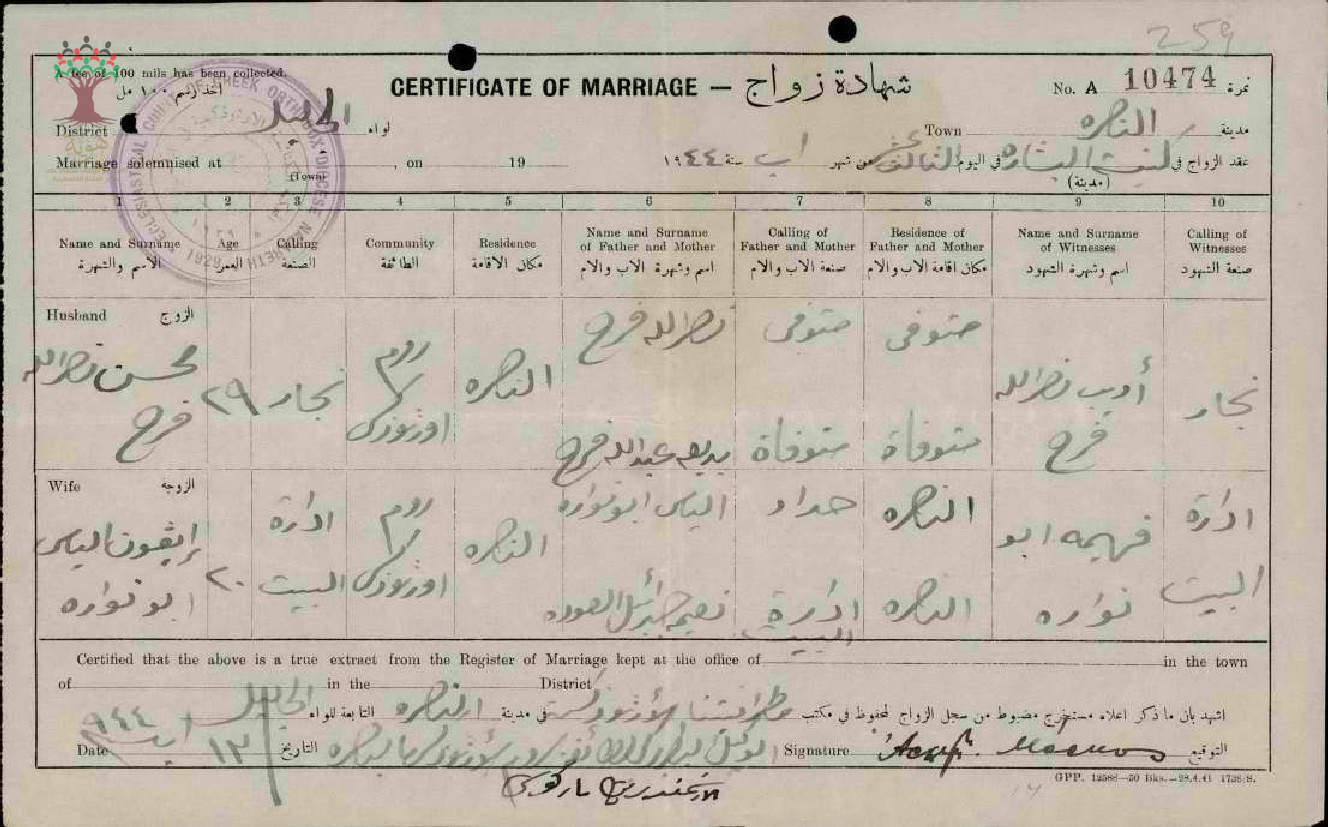 259
A fee of 100 mils has been collected.
أخذ رسم ١٠٠ مل
CERTIFICATE OF MARRIAGE — شهادة زواج
No. A 10474 نمرة
District الجليل لواء
Town الناصره مدينة
Marriage solemnised at , on 19
(Town)
عقد الزواج في كنيسة البشاره في اليوم الثالث عشر من شهر اب سنة ١٩٤٤
(مدينة)
ECCLESIASTICAL COURT OF GREEK ORTHODOX DIOCESE NAZARETH 1929
1 2 3 4 5 6 7 8 9 10
Name and Surname الاسم والشهرة
Age العمر
Calling الصنعة
Community الطائفة
Residence مكان الاقامة
Name and Surname of Father and Mother اسم وشهرة الاب والام
Calling of Father and Mother صنعة الاب والام
Residence of Father and Mother مكان اقامة الاب والام
Name and Surname of Witnesses اسم وشهرة الشهود
Calling of Witnesses صنعة الشهود
Husband الزوج
محسن نصرالله فرح
٢٩
نجار
روم اورثوذكس
الناصره
نصرالله فرح
بديعه عبدالله فرح
متوفى
متوفاة
متوفى
متوفاة
أديب نصرالله فرح
نجار
Wife الزوجه
ايڤون الياس ابو نواره
٢٠
ادارة البيت
روم اورثوذكس
الناصره
الياس ابو نواره
نعيمه جبرائيل
حداد
ادارة البيت
الناصره
الناصره
فهيمه ابو نواره
ادارة البيت
Certified that the above is a true extract from the Register of Marriage kept at the office of in the town
of in the District
اشهد بان ما ذكر اعلاه مستخرج مضبوط من سجل الزواج المحفوظ في مكتب في مدينة الناصره التابعة للواء الجليل
Date ١٣ اب ٩٤٤ التاريخ
Signature التوقيع
GPP. 12588—50 Bks.—28.4.41 1736/S.